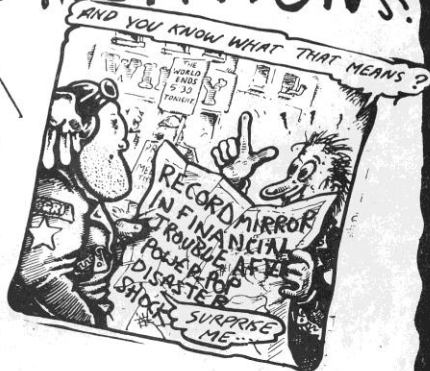 AND YOU KNOW WHAT THAT MEANS?
THE
WORLD
ENDS
5:30
TONIGHT
RECORD MIRROR
IN FINANCIAL
TROUBLE AFTER
POWER POP
DISASTER
SHOCK
SURPRISE
ME...